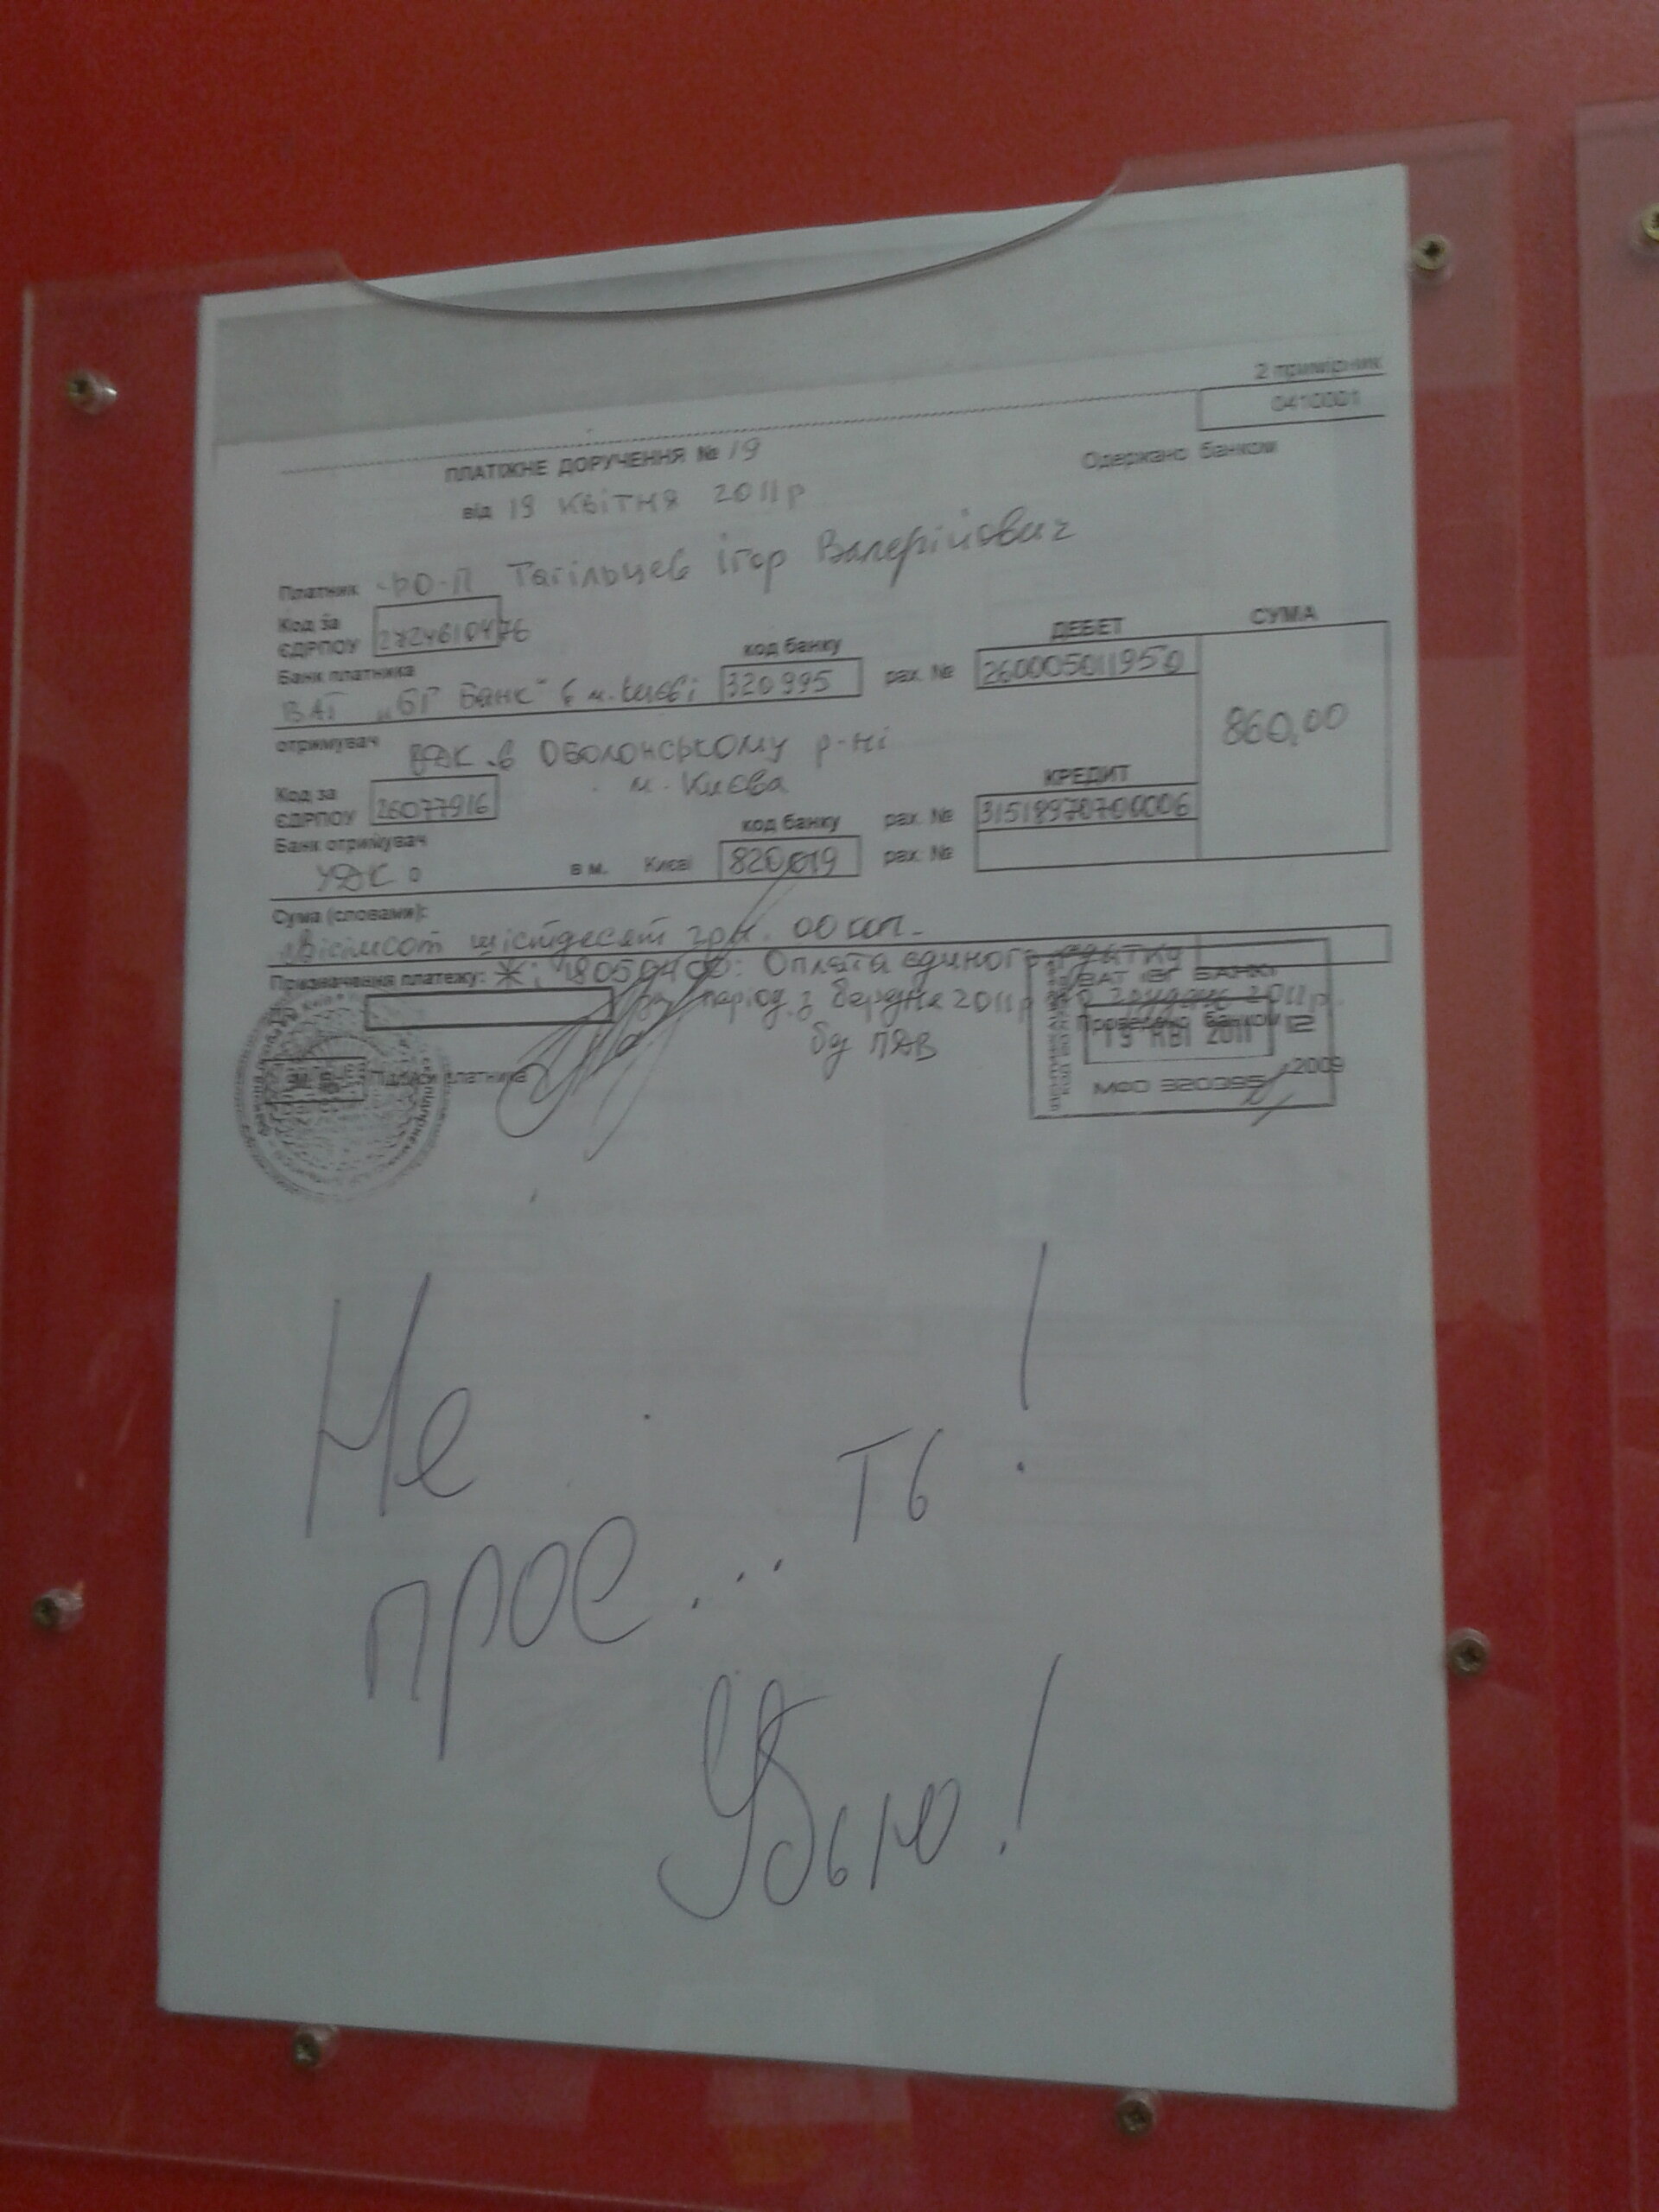 2 примірник
0410001
ПЛАТІЖНЕ ДОРУЧЕННЯ № 19
Одержано банком
від 19 квітня 2011 р
Платник ФО-П Тагільцев Ігор Валерійович
Код за ЄДРПОУ 2724610476
ДЕБЕТ СУМА
Банк платника код банку
ВАТ „БГ Банк" в м. Києві 320995 рах. № 260005011950
860,00
отримувач УДК в Оболонському р-ні
м. Києва
КРЕДИТ
Код за ЄДРПОУ 26077916
код банку рах. № 31518970700006
Банк отримувач
УДК о в м. Києві 820019 рах. №
Сума (словами):
Вісімсот шістдесят грн. 00 коп.
Призначення платежу: Ж; 18050400: Оплата єдиного
період з березня 2011р по грудень 2011р.
бу ПДВ
Підписи платника
ВАТ "БГ БАНК"
Проведено банком
19 КВІ 2011 12
2009
Не
прос... ть!
Убью!